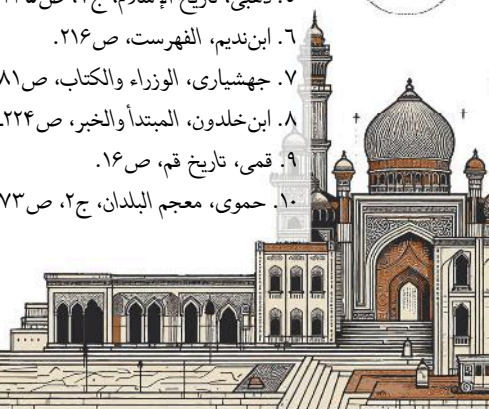 ذهبی، تاریخ الإسلام، ج
۶. ابن‌ندیم، الفهرست، ص۲۱۶.
۷. جهشیاری، الوزراء والکتاب، ص۸۱
۸. ابن‌خلدون، المبتدأ والخبر، ص۲۲۴ـ
۹. قمی، تاریخ قم، ص۱۶.
۱۰. حموی، معجم البلدان، ج۲، ص۷۳